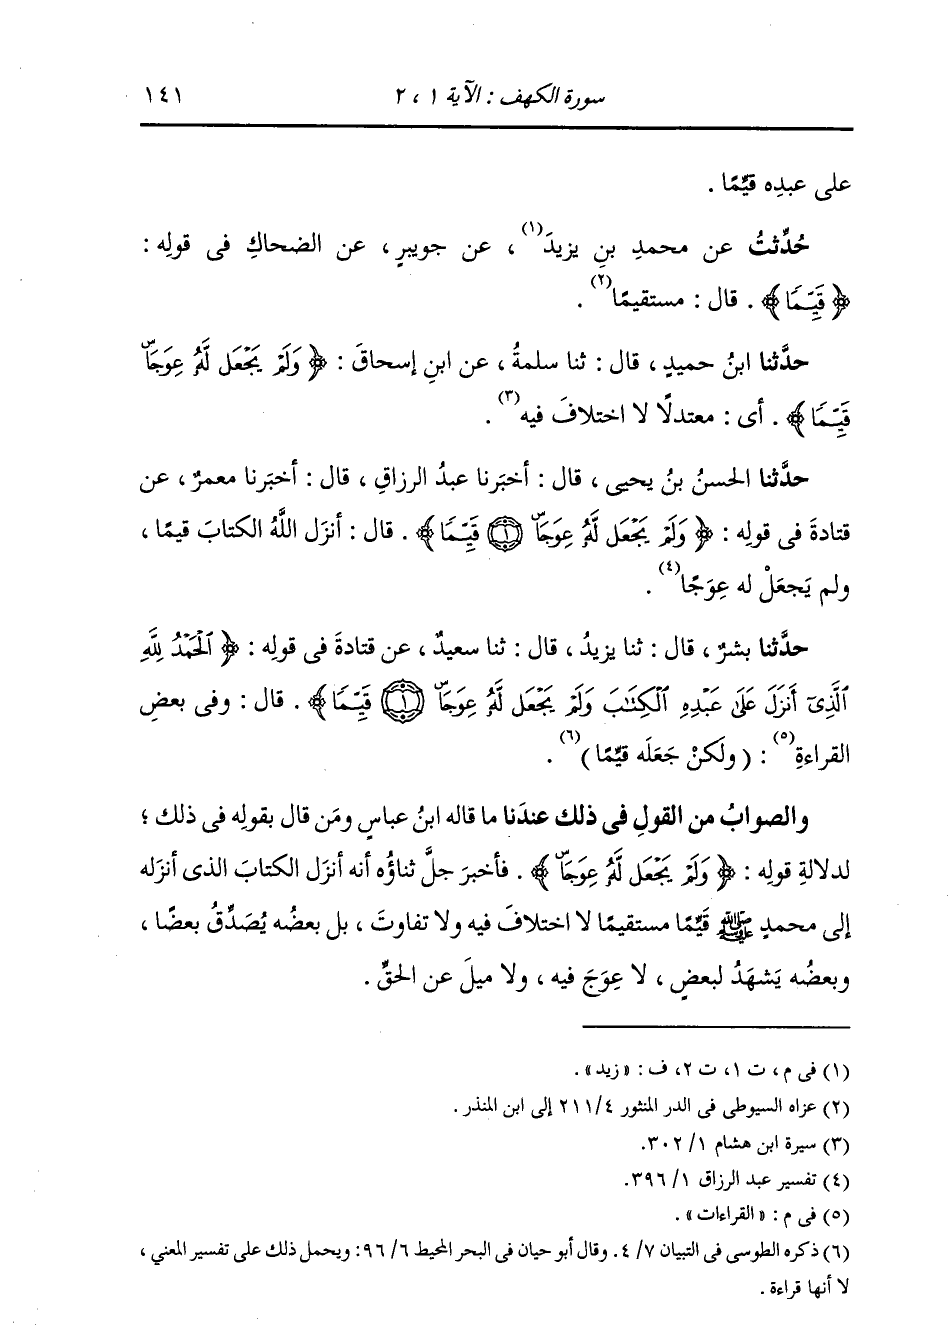 سورة الكهف : الآية ١ ، ٢
١٤١
على عبدِه قيِّمًا .
حُدِّثتُ عن محمدِ بنِ يزيدَ(١) ، عن جويبرٍ ، عن الضحاكِ فى قولِه :
﴿ قَيِّمًا ﴾ . قال : مستقيمًا(٢) .
حدَّثنا ابنُ حميدٍ ، قال : ثنا سلمةُ ، عن ابنِ إسحاقَ : ﴿ وَلَمْ يَجْعَل لَّهُ عِوَجَاۜ
قَيِّمًا ﴾ . أى : معتدلًا لا اختلافَ فيه(٣) .
حدَّثنا الحسنُ بنُ يحيى ، قال : أخبَرنا عبدُ الرزاقِ ، قال : أخبَرنا معمرٌ ، عن
قتادةَ فى قولِه : ﴿ وَلَمْ يَجْعَل لَّهُ عِوَجَاۜ ۝١ قَيِّمًا ﴾ . قال : أنزَل اللَّهُ الكتابَ قيمًا ،
ولم يَجعَلْ له عِوَجًا(٤) .
حدَّثنا بشرٌ ، قال : ثنا يزيدُ ، قال : ثنا سعيدٌ ، عن قتادةَ فى قولِه : ﴿ الْحَمْدُ لِلَّهِ
الَّذِىٓ أَنزَلَ عَلَىٰ عَبْدِهِ الْكِتَٰبَ وَلَمْ يَجْعَل لَّهُ عِوَجَاۜ ۝١ قَيِّمًا ﴾ . قال : وفى بعضِ
القراءةِ(٥) : ( ولَكنْ جَعَلَه قيِّمًا )(٦) .
والصوابُ من القولِ فى ذلك عندَنا ما قاله ابنُ عباسٍ ومَن قال بقولِه فى ذلك ؛
لدلالةِ قولِه : ﴿ وَلَمْ يَجْعَل لَّهُ عِوَجَاۜ ﴾ . فأخبرَ جلَّ ثناؤُه أنه أنزَل الكتابَ الذى أنزَله
إلى محمدٍ ﷺ قَيِّمًا مستقيمًا لا اختلافَ فيه ولا تفاوتَ ، بل بعضُه يُصَدِّقُ بعضًا ،
وبعضُه يَشهَدُ لبعضٍ ، لا عِوَجَ فيه ، ولا ميلَ عن الحقِّ .
(١) فى م ، ت ١، ت ٢، ف : « زيد » .
(٢) عزاه السيوطى فى الدر المنثور ٢١١/٤ إلى ابن المنذر .
(٣) سيرة ابن هشام ١/ ٣٠٢.
(٤) تفسير عبد الرزاق ١/ ٣٩٦.
(٥) فى م : « القراءات » .
(٦) ذكره الطوسى فى التبيان ٧/ ٤. وقال أبو حيان فى البحر المحيط ٦/ ٩٦: ويحمل ذلك على تفسير المعنى ،
لا أنها قراءة .